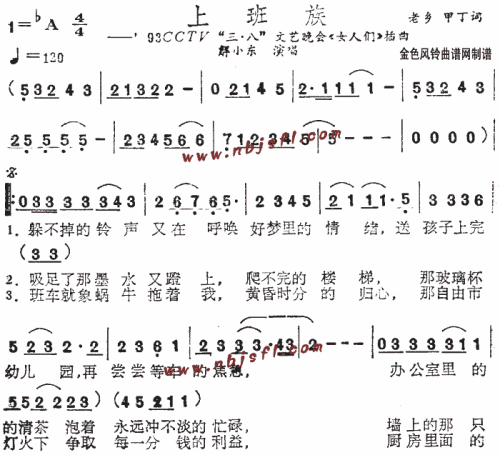 上 班 族
1=♭A 4/4
老乡 甲丁词
——'93CCTV“三·八”文艺晚会《女人们》插曲
♩=120
解小东 演唱
金色风铃曲谱网制谱
(5 3 2 4 3 | 2 1 3 2 2 - | 0 2 1 4 5 | 2· 1 1 1 1 - | 5 3 2 4 3
2 5 5 5 5 - | 2 3 4 5 6 6 | 7 1 2 3 4 5 | 5 - - - | 0 0 0 0 )
www.nbjsfl.com
0 3 3 3 3 3 4 3 | 2 6 7 6 5· | 2 3 4 5 | 2 1 1 1· 5 | 3 3 3 6
1. 躲不掉的 铃 声 又 在 呼唤 好梦里的 情 绪, 送 孩子上完
( 3 3 )
2. 吸足了那 墨 水 又 蹬 上, 爬不完的 楼 梯, 那玻璃杯
3. 班车就象 蜗 牛 拖 着 我, 黄昏时分 的 归心, 那自由市
5 2 3 2· 2 | 2 3 6 1 | 2 3 3 3 ·4 3 | 2 - - - | 0 3 3 3 3 1
www.nbjsfl.com
幼儿 园,再 尝尝等车 的焦急, 办公室里的
5 5 2 2 2 3 ) ( 4 5 2 1 1 )
的清茶 泡着 永远冲不淡的 忙碌, 墙上的那 只
灯火下 争取 每一分 钱的利益, 厨房里面的